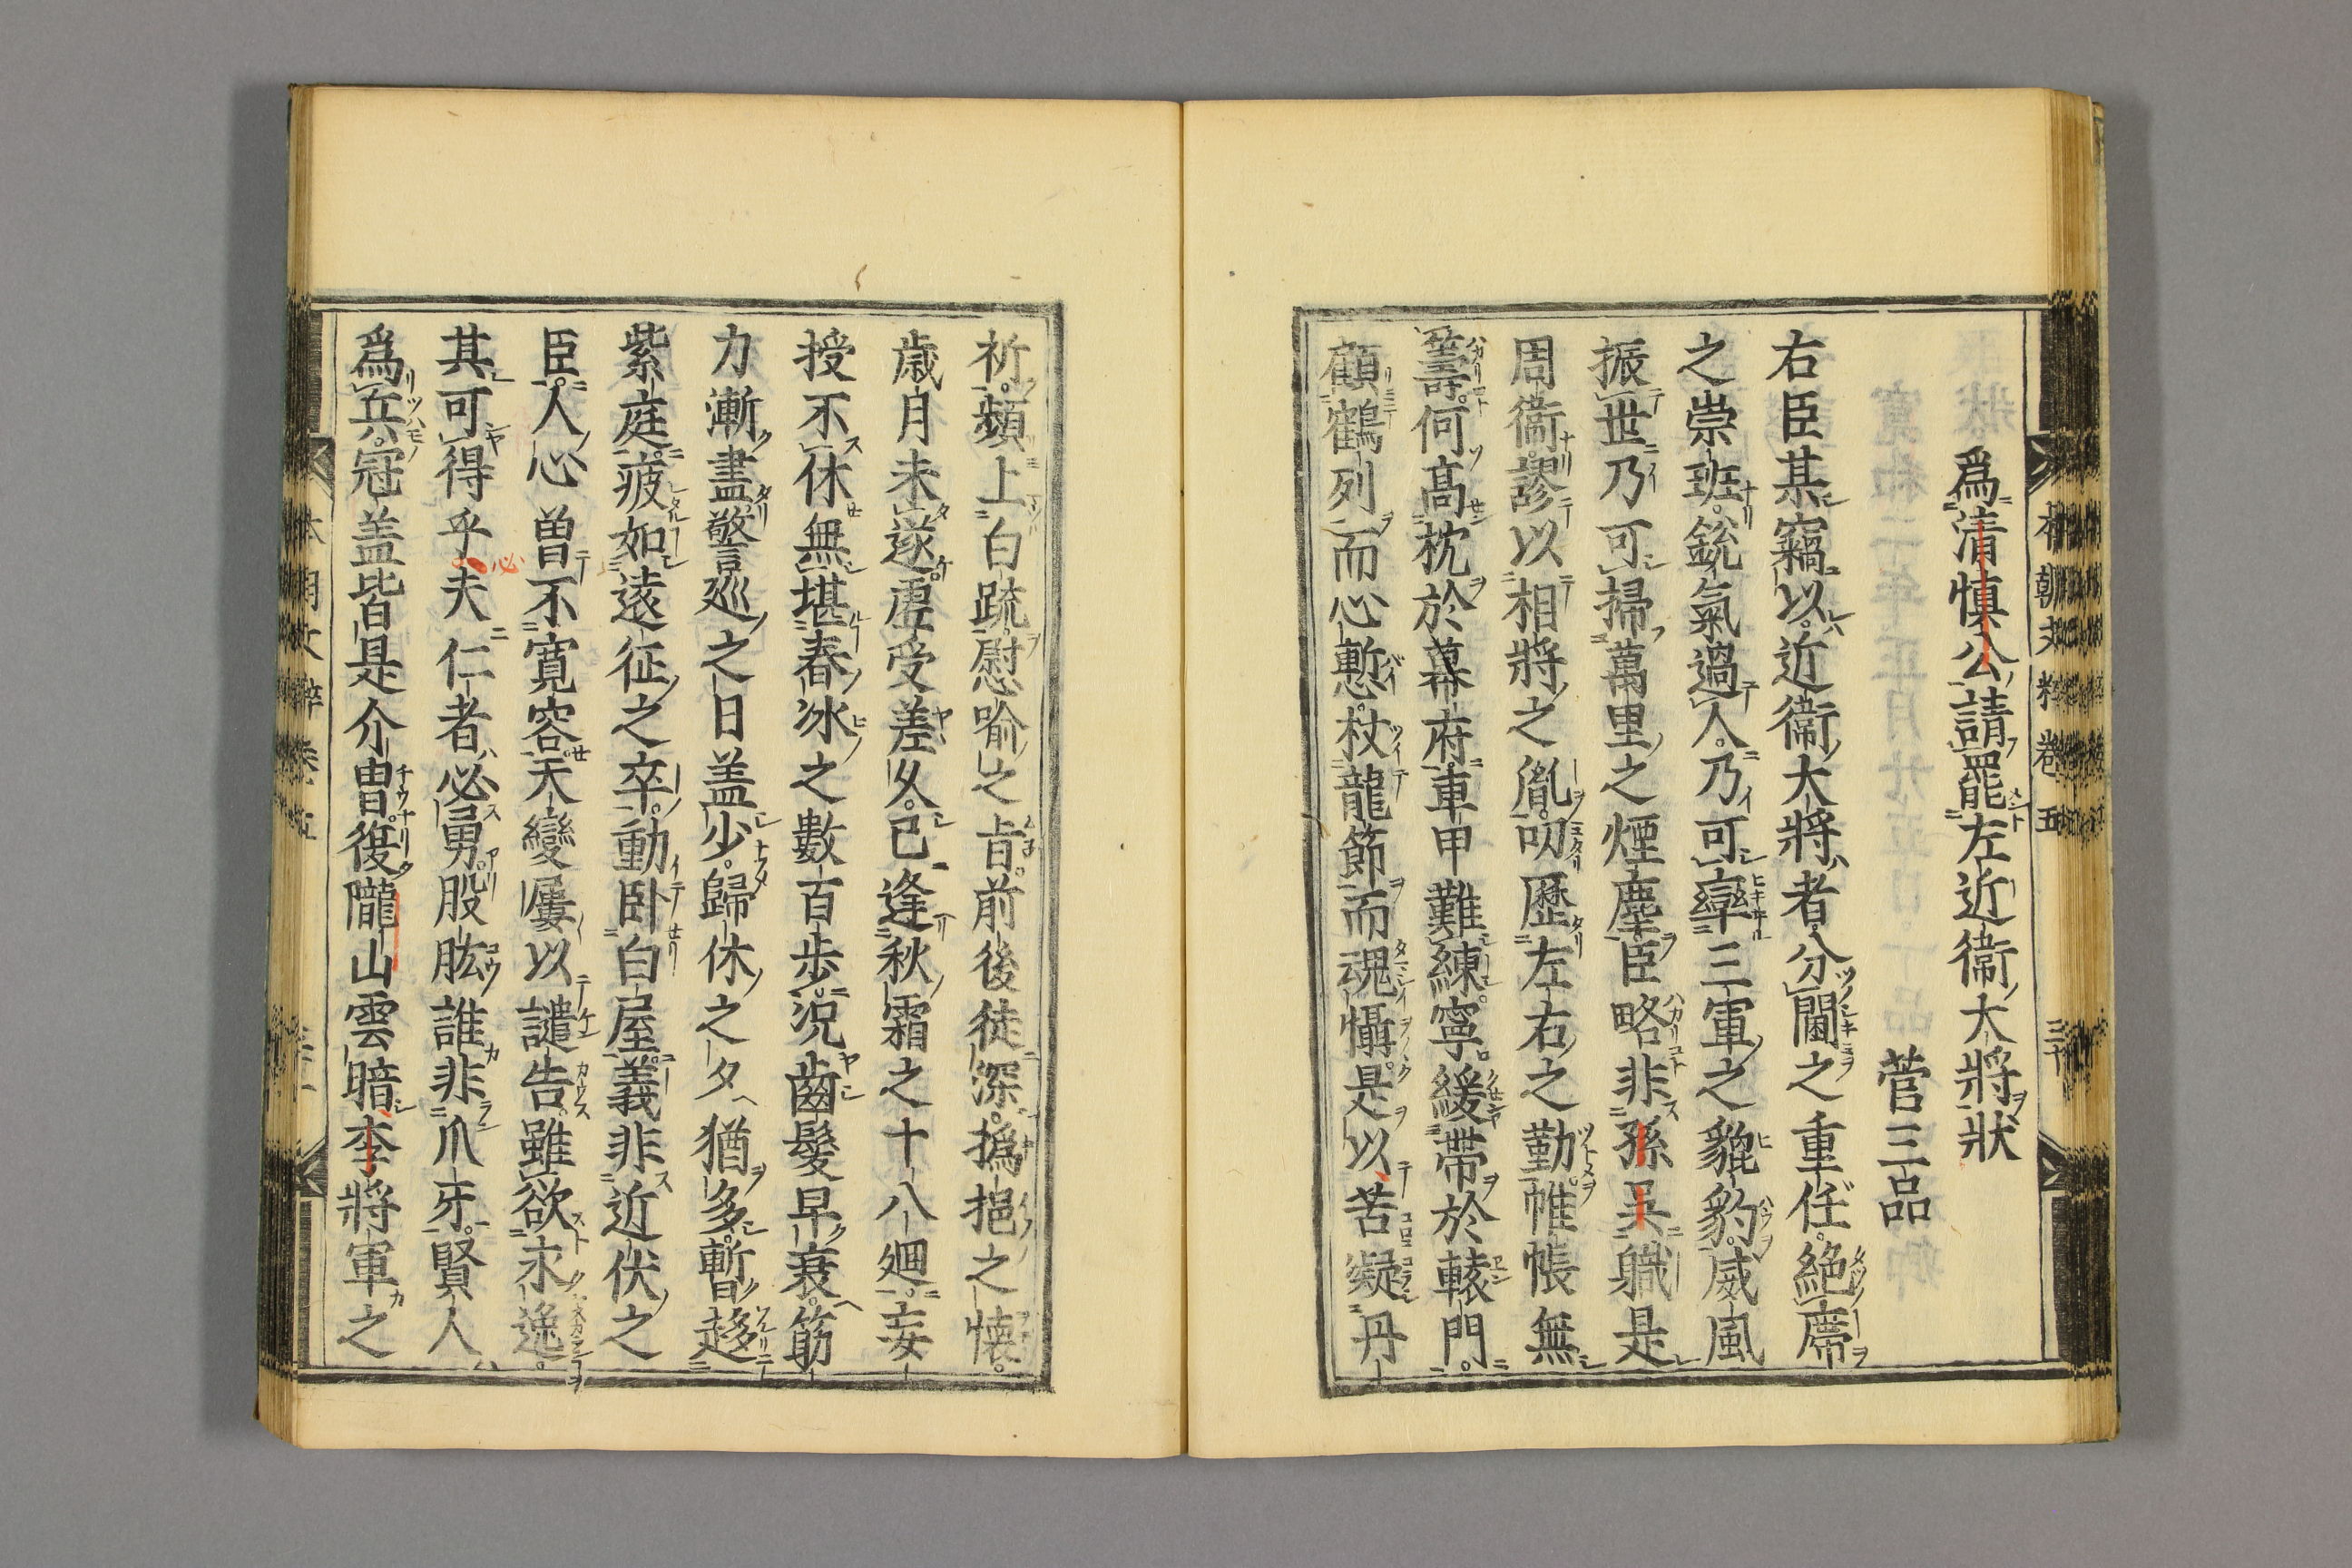 本朝文粹卷五
三十
爲清慎公請罷左近衞大將狀
菅三品
右臣某竊以近衞大將者分閫之重任絕席
之崇班銳氣過人乃可寧三軍之貔豹威風
振世乃可掃萬里之煙塵臣略非孫吳職是
周衞謬以相將之胤叨歷左右之勤帷帳無
籌何高枕於幕府車甲難練寧緩帶於轅門
顧鶴列而心慙杖龍節而魂懾是以苦凝丹
祈頻上白疏慰喻之旨前後徒深撝挹之懷
歲月未遂虛受差久已逢秋霜之十八廻妄
授不休無堪春氷之數百步況齒髮早衰筋
力漸盡警巡之日盖少歸休之夕猶多暫趍
紫庭疲如遠征之卒動臥白屋義非近伏之
臣人心曾不寬容天變屢以譴告雖欲永逸
其可得乎夫仁者必勇股肱誰非爪牙賢人
爲兵冠盖皆是介冑復隴山雲暗李將軍之
本朝文粹卷五